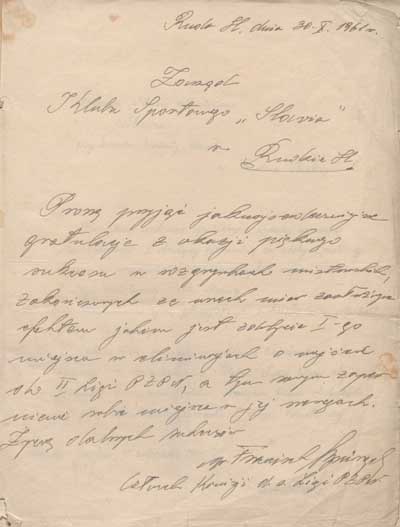 Ruda Śl. dnia 30. X. 1961 r.
Zarząd
Klubu Sportowego „Slavia”
w
Rudzie Śl.
Proszę przyjąć jaknajserdeczniejsze
gratulacje z okazji pięknego
sukcesu w rozgrywkach mistrzowskich,
zakończonych ze wszech miar
efektem jakim jest zdobycie I-go
miejsca w eliminacjach o wejście
do II Ligi PZPN, a tym samym zapew
nienie sobie miejsca w jej szeregach.
Życzę dalszych sukcesów
mgr
Ligi